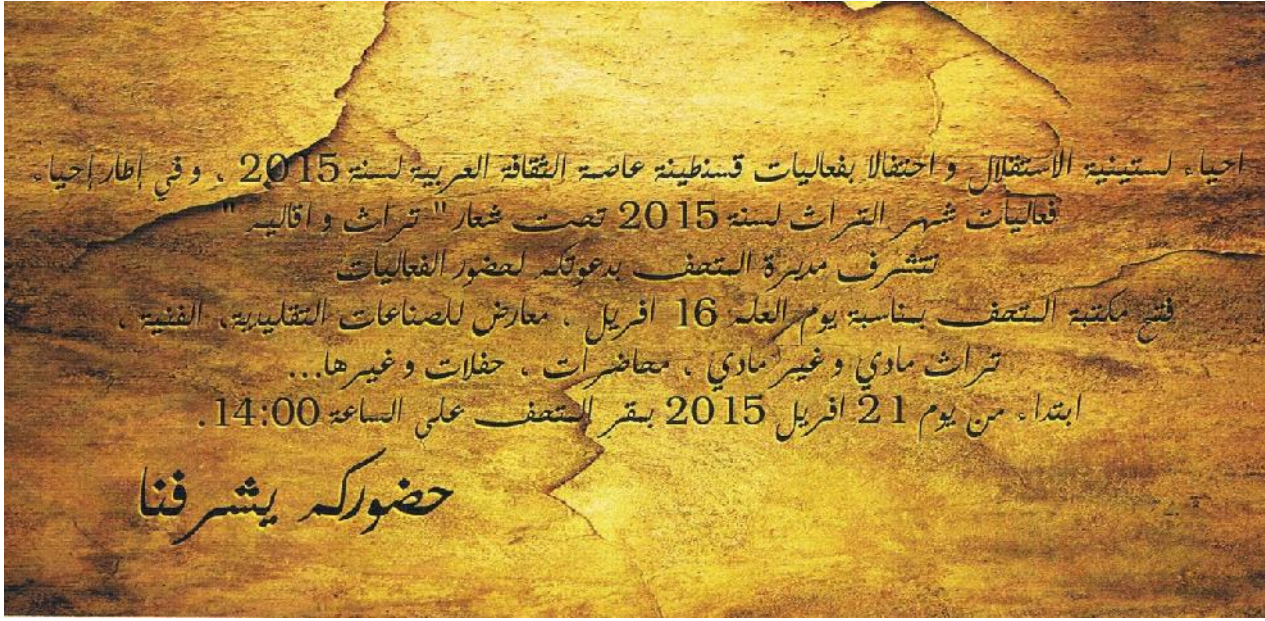 احياء لستينية الاستقلال و احتفالا بفعاليات قسنطينة عاصمة الثقافة العربية لسنة 2015 ، وفي إطار إحياء
فعاليات شهر التراث لسنة 2015 تحت شعار " تراث و اقاليم "
تتشرف مديرة المتحف بدعوتكم لحضور الفعاليات
فتح مكتبة المتحف بمناسبة يوم العلم 16 افريل ، معارض للصناعات التقليدية، الفنية ،
تراث مادي و غير مادي ، محاضرات ، حفلات و غيرها...
ابتداء من يوم 21 افريل 2015 بمقر المتحف على الساعة 14:00.
حضوركم يشرفنا